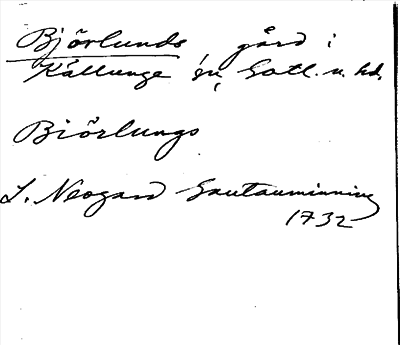 Björlunds, gård i
Källunge sn, Gotl. n. hd.
Biörlungs
L. Neogard Gautauminning
1732